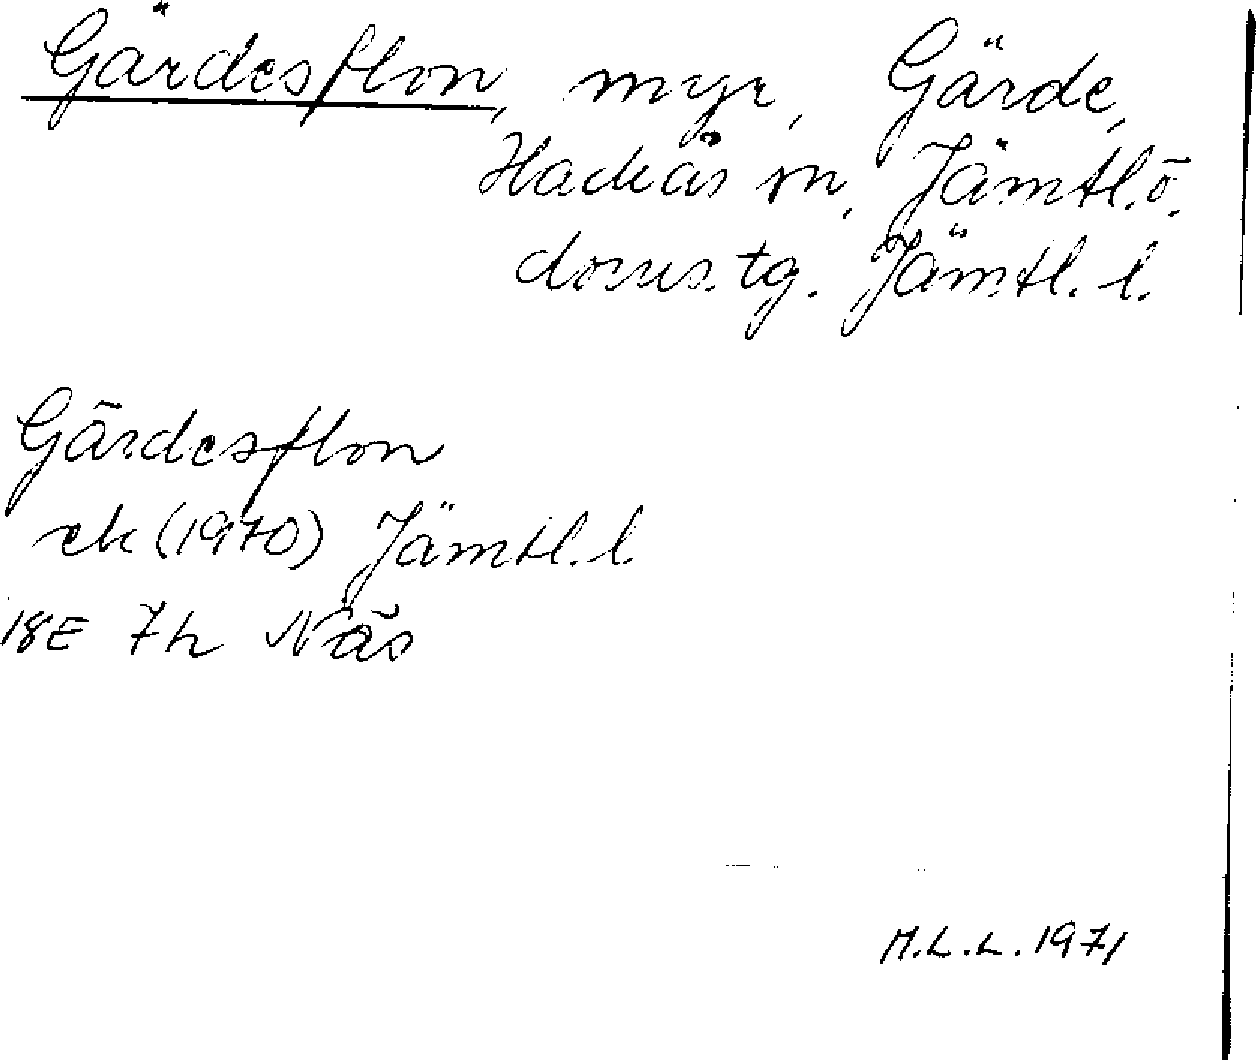 Gärdesflon, myr, Gärde,
Hackås sn, Jämtl. ö.
doms. tg. Jämtl. l.
Gärdesflon
ek (1970) Jämtl. l.
18E 7h Näs
M.L.L. 1971